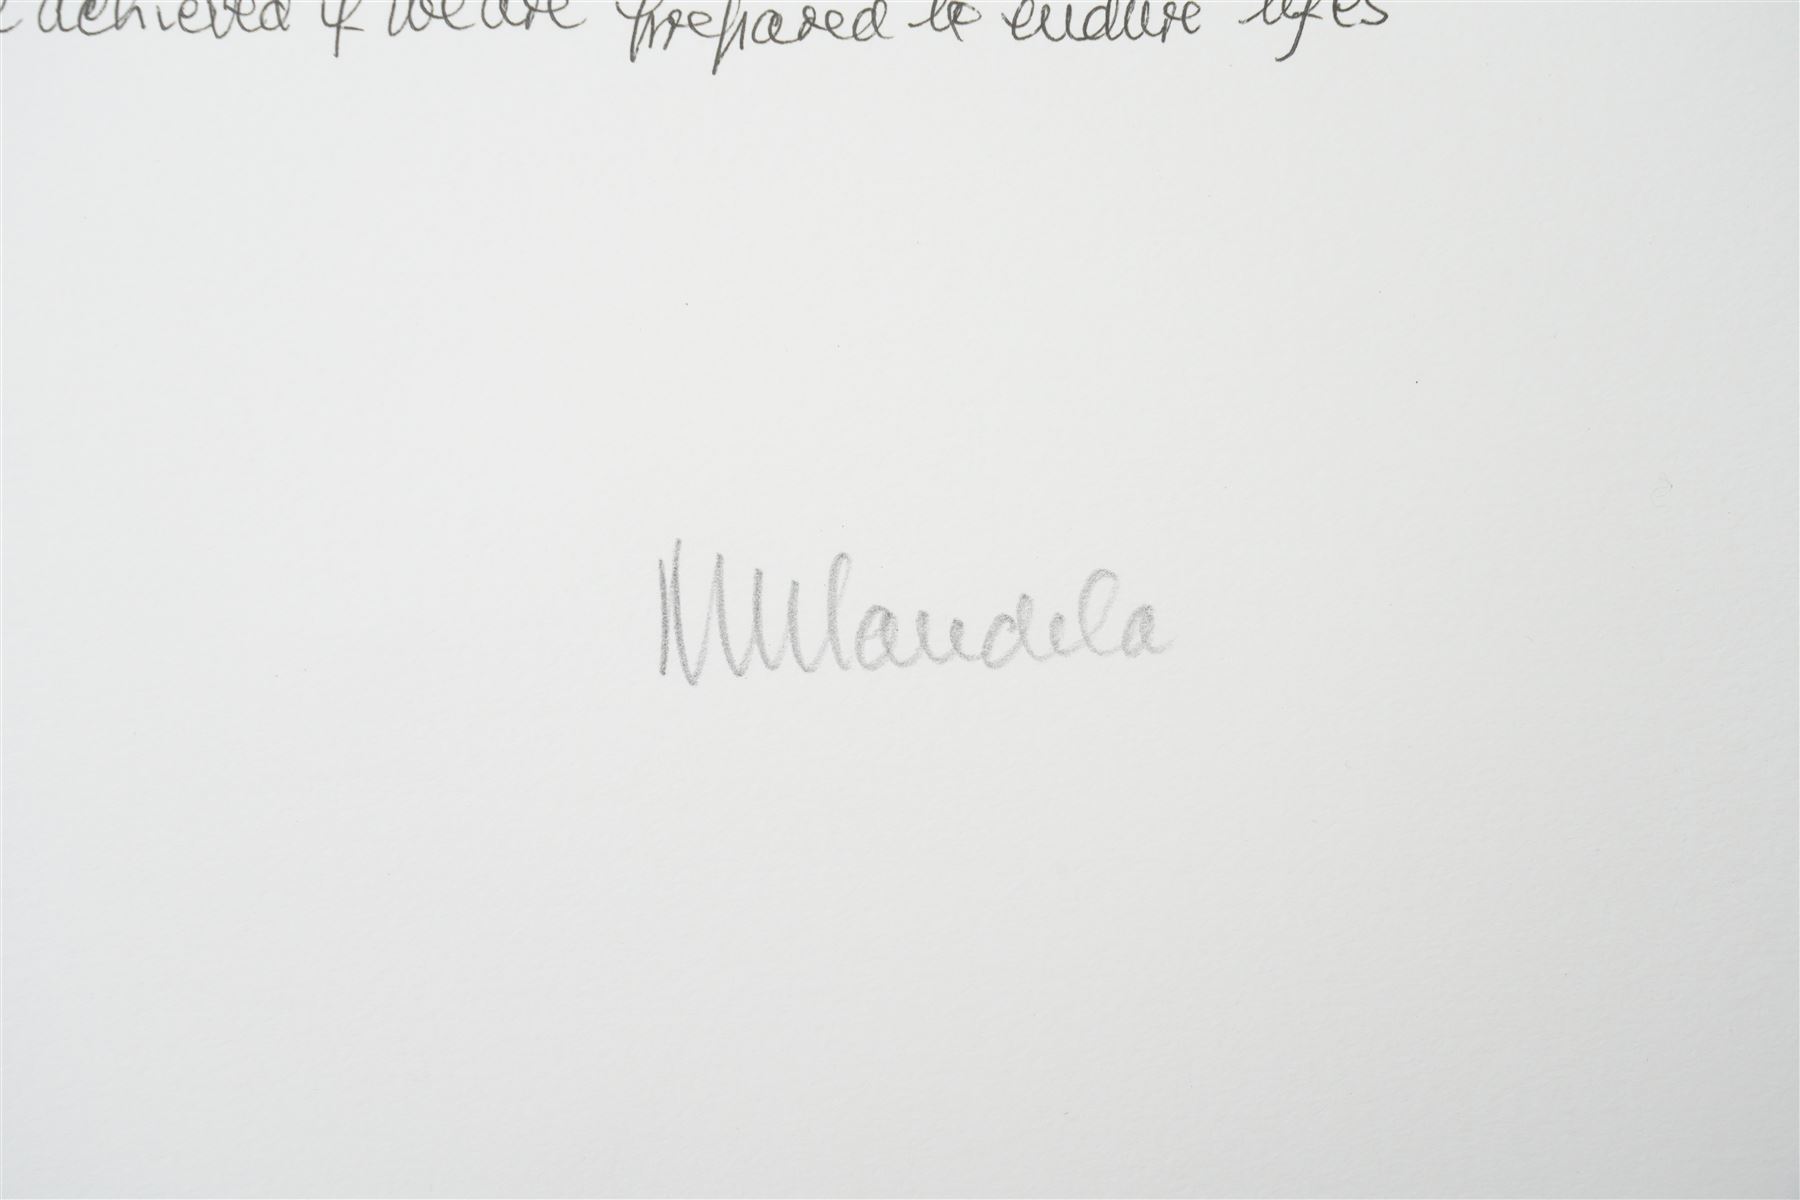 achieved if we are prepared to endure life's
NMandela